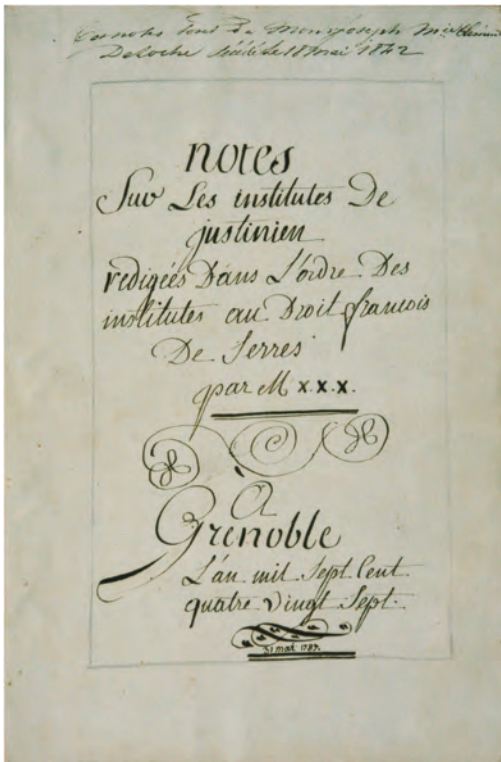 Ces notes sont de Monsr joseph
Deloche décédé le 18 mai 1842
notes
Sur Les institutes De
justinien
redigées Dans L'ordre Des
institutes au Droit francois
De Serres
par M x.x.x.
À
Grenoble
L'an mil Sept Cent
quatre vingt Sept.
31 mai 1787.